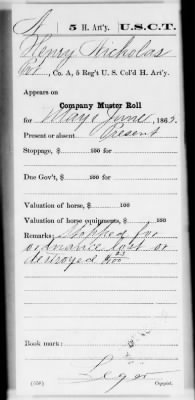 N 5 H. Art'y. U.S.C.T.
Henry Nicholas
Pvt, Co. A, 5 Reg't U. S. Col'd H. Art'y.
Appears on
Company Muster Roll
for May & June, 1865.
Present or absent Present
Stoppage, $ 100 for
Due Gov't, $ 100 for
Valuation of horse, $ 100
Valuation of horse equipments, $ 100
Remarks: Stopped for
ordnance lost or
destroyed
Book mark:
Leger
(358) Copyist.